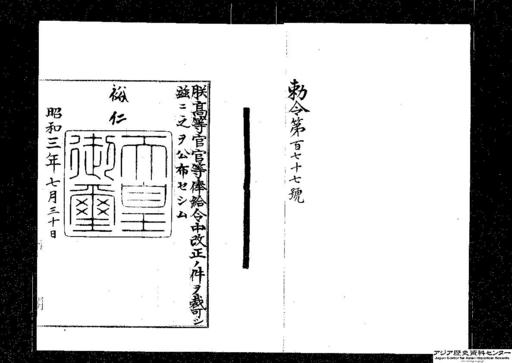 勅令第百七十七號
朕高等官官等俸給令中改正ノ件ヲ裁可シ
玆ニ之ヲ公布セシム
裕仁
天皇
御璽
昭和三年七月三十日
アジア歴史資料センター
Japan Center for Asian Historical Records